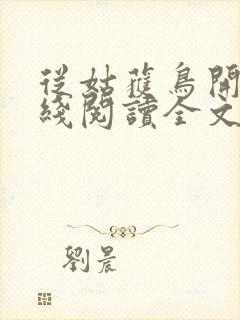 從姑蔖鳥開
綫閱讀全文
劉晨